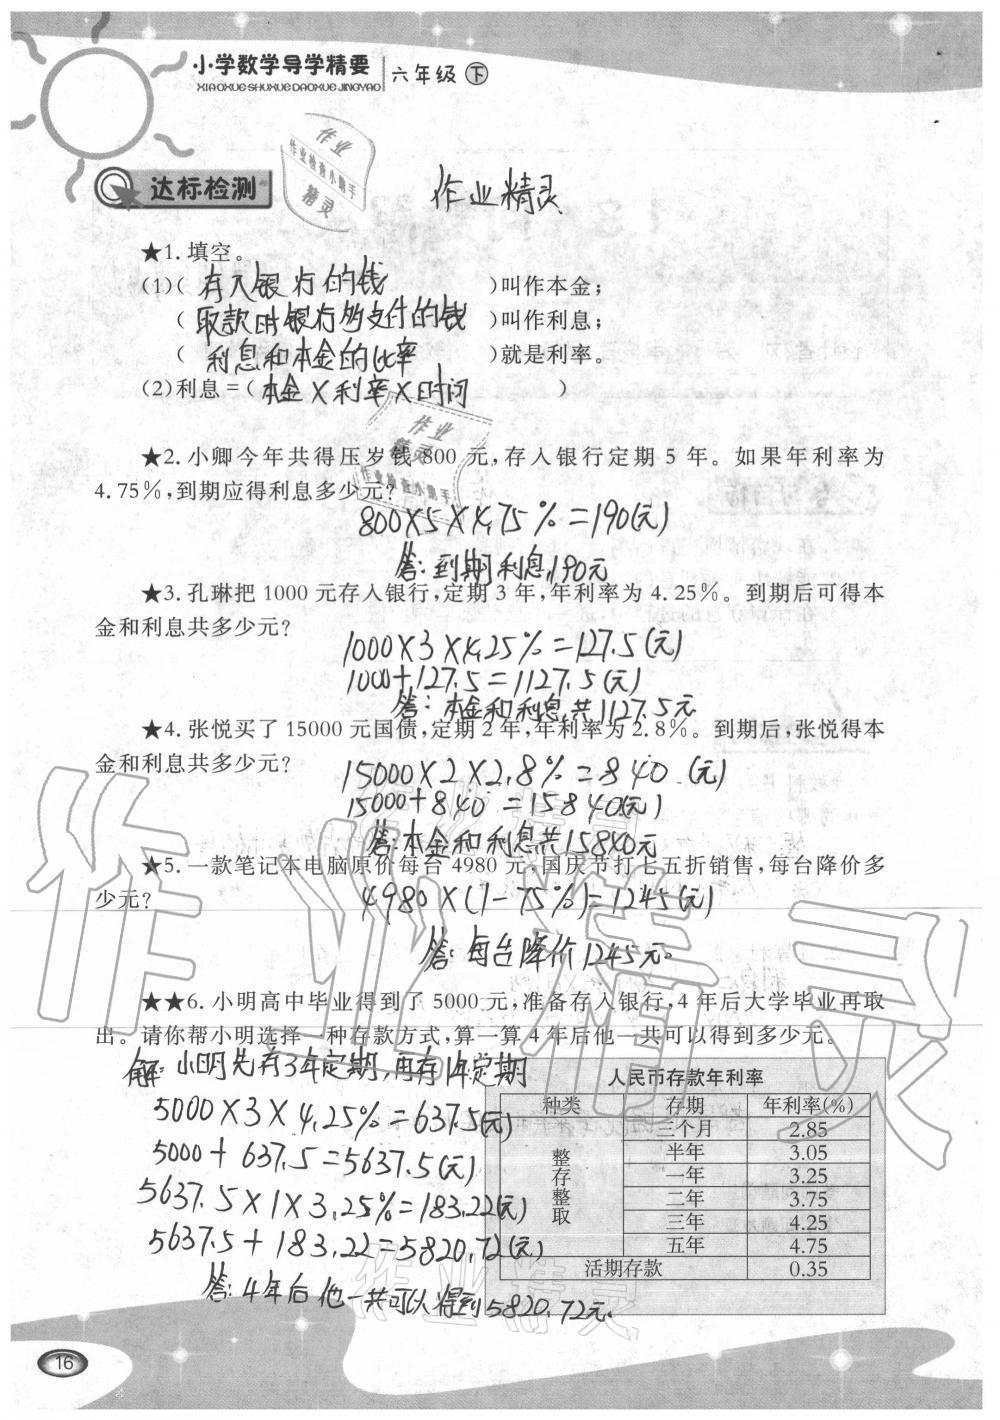 小学数学导学精要
六年级 下
XIAOXUESHUXUEDAOXUEJINGYAO
作业
作业检查小助手
精灵
达标检测
作业精灵
★1.填空。
(1)(存入银行的钱)叫作本金;
(取款时银行多支付的钱)叫作利息;
(利息和本金的比率)就是利率。
(2)利息=(本金×利率×时间)
作业
精灵
作业检查小助手
★2.小卿今年共得压岁钱800元,存入银行定期5年。如果年利率为
4.75%,到期应得利息多少元?
800×5×4.75%=190(元)
答:到期利息190元
★3.孔琳把1000元存入银行,定期3年,年利率为4.25%。到期后可得本
金和利息共多少元?
1000×3×4.25%=127.5(元)
1000+127.5=1127.5(元)
答:本金和利息共1127.5元.
★4.张悦买了15000元国债,定期2年,年利率为2.8%。到期后,张悦得本
金和利息共多少元?
15000×2×2.8%=840(元)
15000+840=15840(元)
答:本金和利息共15840元
★5.一款笔记本电脑原价每台4980元,国庆节打七五折销售,每台降价多
少元?
4980×(1-75%)=1245(元)
答:每台降价1245元。
作业精灵
★★6.小明高中毕业得到了5000元,准备存入银行,4年后大学毕业再取
出。请你帮小明选择一种存款方式,算一算4年后他一共可以得到多少元。
解:小明先存3年定期,再存1年定期
5000×3×4.25%=637.5(元)
5000+637.5=5637.5(元)
5637.5×1×3.25%=183.22(元)
5637.5+183.22=5820.72(元)
答:4年后他一共可以得到5820.72元.
人民币存款年利率
种类 存期 年利率(%)
整存整取 三个月 2.85
半年 3.05
一年 3.25
二年 3.75
三年 4.25
五年 4.75
活期存款 0.35
作业精灵
16